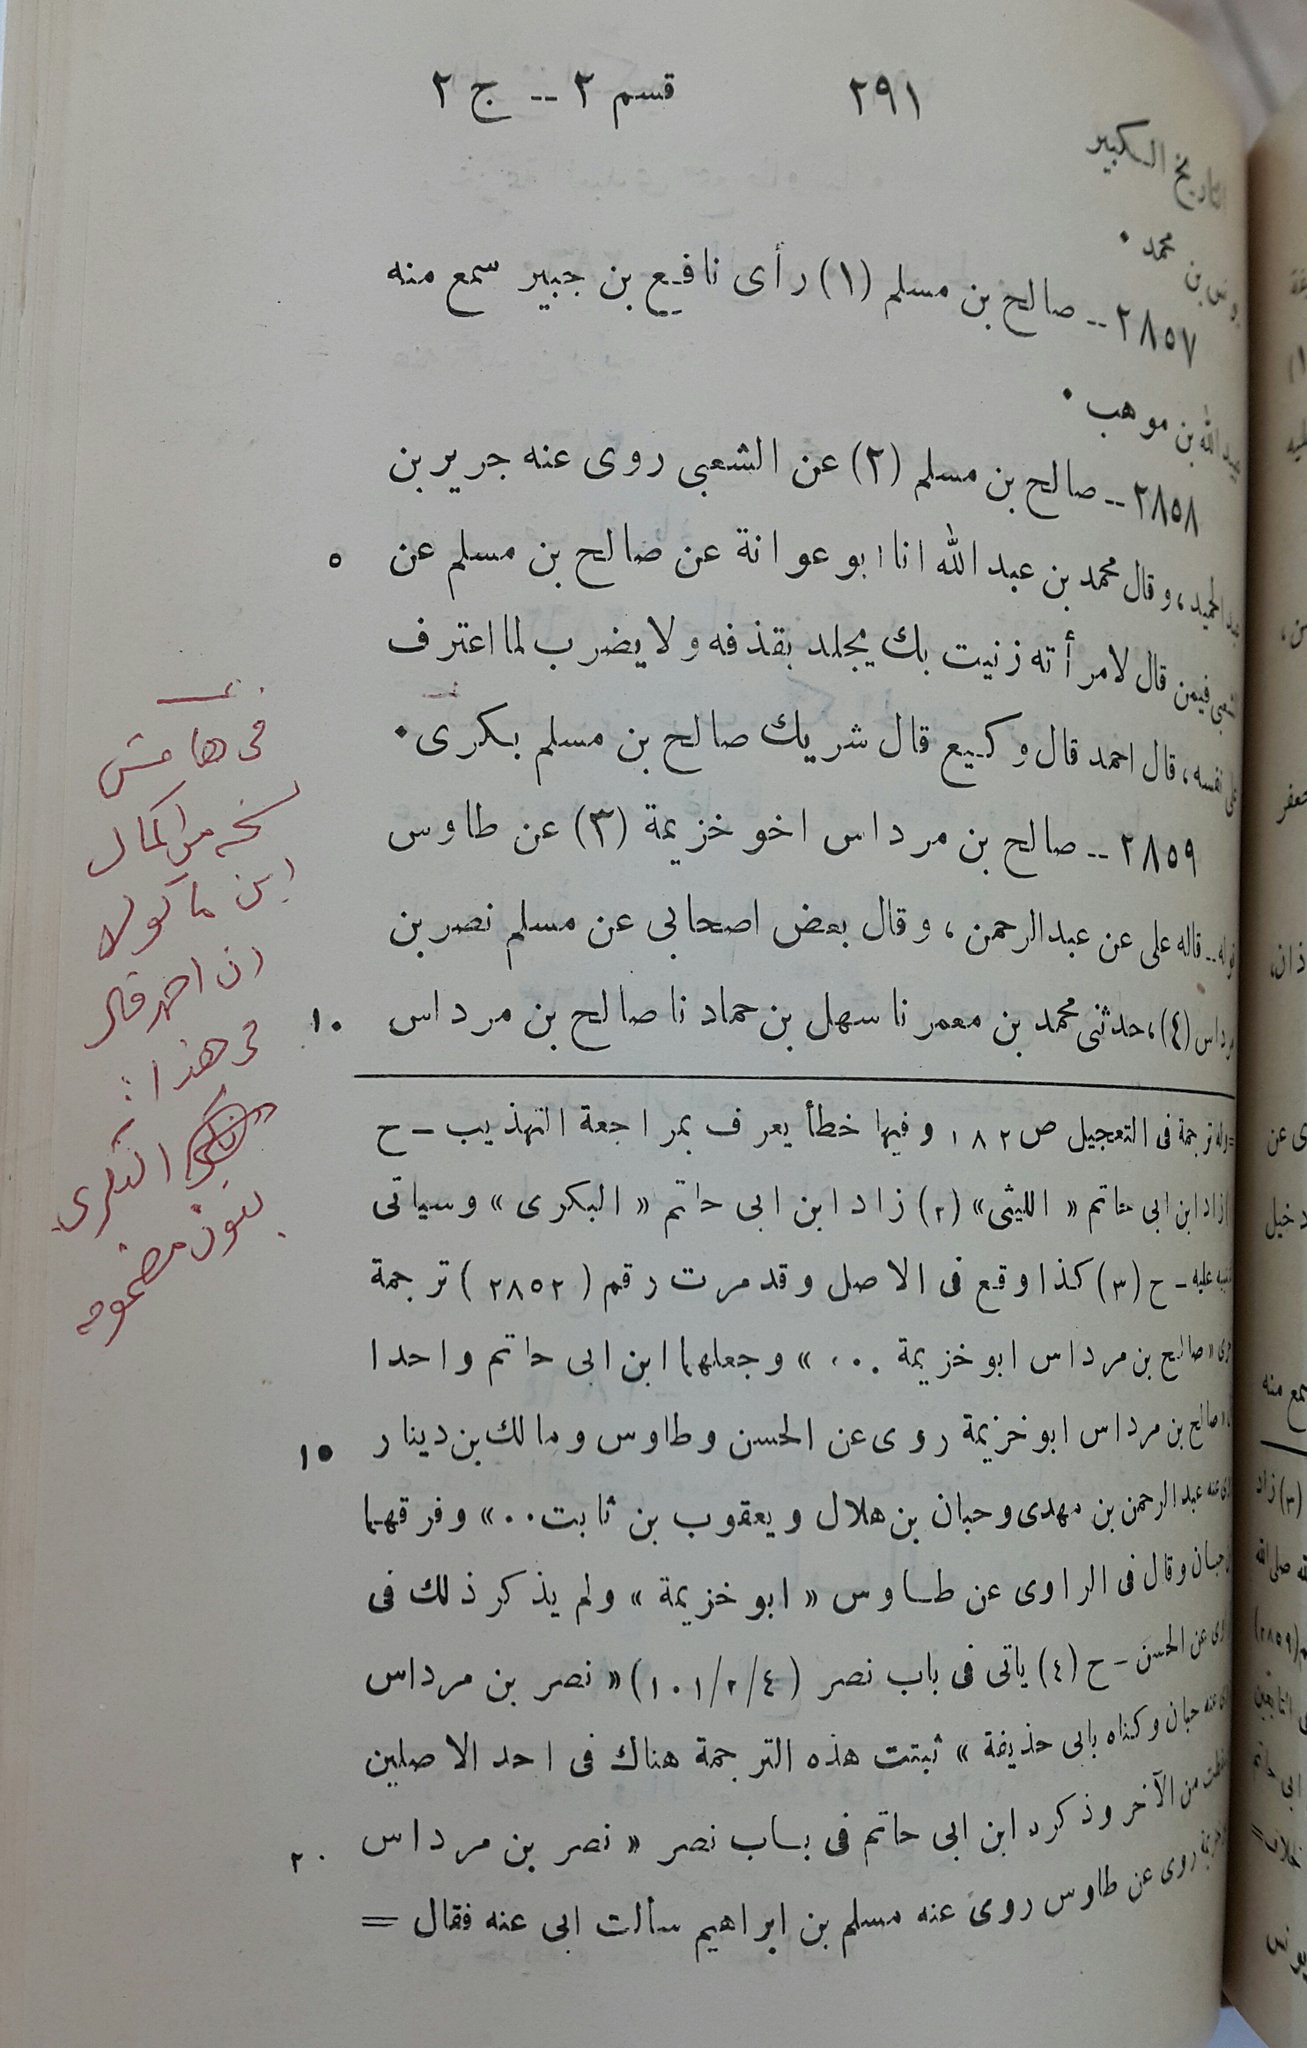 التاريخ الكبير ٢٩١ قسم ٢ -- ج ٢
يونس بن محمد .
٢٨٥٧ -- صالح بن مسلم (١) رأى نافع بن جبير سمع منه
عبيد الله بن موهب .
٢٨٥٨ -- صالح بن مسلم (٢) عن الشعبى روى عنه جرير بن
عبد الحميد ، وقال محمد بن عبد الله انا ابو عوانة عن صالح بن مسلم عن ٥
الشعبى فيمن قال لامرأته زنيت بك يجلد بقذفه ولا يضرب لما اعترف
على نفسه ، قال احمد قال وكيع قال شريك صالح بن مسلم بكرى .
٢٨٥٩ -- صالح بن مرداس اخو خزيمة (٣) عن طاوس
قوله -- قاله على عن عبد الرحمن ، وقال بعض اصحابى عن مسلم نصر بن
مرداس (٤) ، حدثنى محمد بن معمر نا سهل بن حماد نا صالح بن مرداس ١٠
= وله ترجمة فى التعجيل ص ١٨٢ وفيها خطأ يعرف بمراجعة التهذيب - ح
(١) زاد ابن ابى حاتم « الليثى » (٢) زاد ابن ابى حاتم « البكرى » وسياتى
التنبيه عليه - ح (٣) كذا وقع فى الاصل وقد مرت رقم ( ٢٨٥٢ ) ترجمة
اخرى « صالح بن مرداس ابو خزيمة ... » وجعلهما ابن ابى حاتم واحدا
« صالح بن مرداس ابو خزيمة روى عن الحسن وطاوس ومالك بن دينار ١٥
روى عنه عبد الرحمن بن مهدى وحبان بن هلال ويعقوب بن ثابت .. » وفرقهما
ابن حبان وقال فى الراوى عن طاوس « ابو خزيمة » ولم يذكر ذلك فى
الراوى عن الحسن - ح (٤) ياتى فى باب نصر (٤/٢/١٠١) « نصر بن مرداس
روى عنه حبان وكناه بابى حذيفة » ثبتت هذه الترجمة هناك فى احد الاصلين
وسقطت من الآخر وذكره ابن ابى حاتم فى باب نصر « نصر بن مرداس ٢٠
ابو خزيمة روى عن طاوس روى عنه مسلم بن ابراهيم سألت ابى عنه فقال =
فى هامش
نسخة من اكمال
ابن ماكولا
ان احمد قال
فى هذا :
انه النكرى
بنون مضمومه